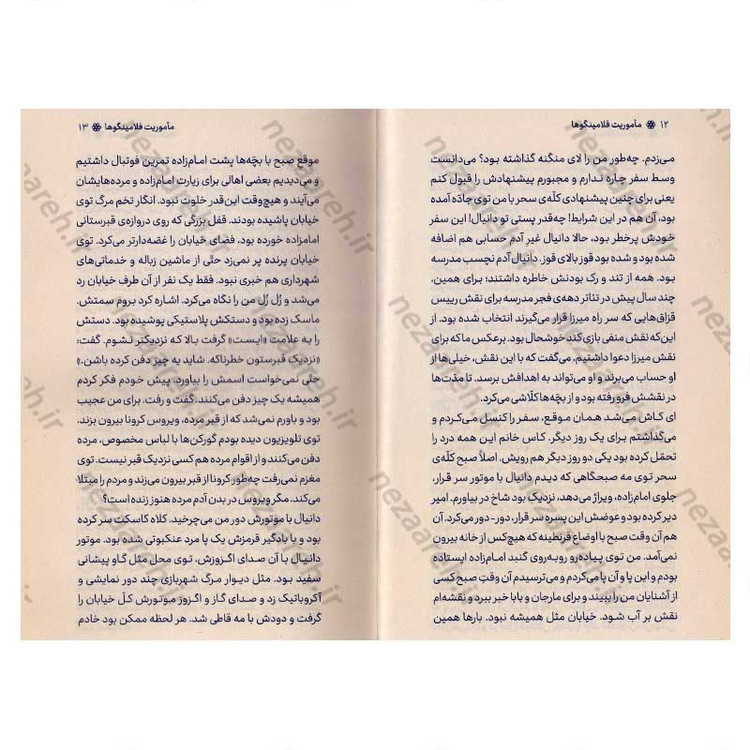 ۱۲ مأموریت فلامینگوها
می‌زدم. چه‌طور من را لای منگنه گذاشته بود؟ می‌دانست
وسط سفر چاره ندارم و مجبورم پیشنهادش را قبول کنم
یعنی برای چنین پیشنهادی کله‌ی سحر با من توی جاده آمده
بود، آن هم در این شرایط! چه‌قدر پستی تو دانیال! این سفر
خودش پرخطر بود، حالا دانیال غیر آدم حسابی هم اضافه
شده بود و شده بود قوز بالای قوز. دانیال آدم نچسب مدرسه
بود. همه از تند و رک بودنش خاطره داشتند؛ برای همین،
چند سال پیش در تئاتر دهه‌ی فجر مدرسه برای نقش رییس
قزاق‌هایی که سر راه میرزا قرار می‌گیرند انتخاب شده بود. از
این‌که نقش منفی بازی کند خوشحال بود. برعکس ما که برای
نقش میرزا دعوا داشتیم. می‌گفت که با این نقش، خیلی‌ها از
او حساب می‌برند و او می‌تواند به اهدافش برسد. تا مدت‌ها
در نقشش فرو رفته بود و از بچه‌ها کلاشی می‌کرد.
ای کاش می‌شد همان موقع، سفر را کنسل می‌کردم و
می‌گذاشتم برای یک روز دیگر. کاس خانم این همه درد را
تحمل کرده بود یکی دو روز دیگر هم رویش. اصلاً صبح کله‌ی
سحر توی مه صبحگاهی که دیدم دانیال با موتور سر قرار،
جلوی امام‌زاده، ویراژ می‌دهد، نزدیک بود شاخ در بیاورم. امیر
دیر کرده بود و عوضش این پسره سر قرار، دور، دور می‌کرد. آن
هم آن وقت صبح با اوضاع قرنطینه که هیچ‌کس از خانه بیرون
نمی‌آمد. من توی پیاده‌رو روبه‌روی گنبد امام‌زاده ایستاده
بودم و این پا و آن پا می‌کردم و می‌ترسیدم آن وقت صبح کسی
از آشنایان من را ببیند و برای مارجان و بابا خبر ببرد و نقشه‌ام
نقش بر آب شود. خیابان مثل همیشه نبود. بارها همین
مأموریت فلامینگوها ۱۳
موقع صبح با بچه‌ها پشت امام‌زاده تمرین فوتبال داشتیم
و می‌دیدیم بعضی اهالی برای زیارت امام‌زاده و مرده‌هایشان
می‌آیند و هیچ‌وقت این‌قدر خلوت نبود. انگار تخم مرگ توی
خیابان پاشیده بودند. قفل بزرگی که روی دروازه‌ی قبرستانی
امامزاده خورده بود، فضای خیابان را غصه‌دارتر می‌کرد. توی
خیابان پرنده پر نمی‌زد حتی از ماشین زباله و خدماتی‌های
شهرداری هم خبری نبود. فقط یک نفر از آن طرف خیابان رد
می‌شد و زُل زُل من را نگاه می‌کرد. اشاره کرد بروم سمتش.
ماسک زده بود و دستکش پلاستیکی پوشیده بود. دستش
را به علامت «ایست» گرفت بالا که نزدیکتر نشوم. گفت:
«نزدیک قبرستون خطرناکه. شاید یه چیز دفن کرده باشن.»
حتی نمی‌خواست اسمش را بیاورد. پیش خودم فکر کردم
همیشه یک چیز دفن می‌کنند. گفت و رفت. برای من عجیب
بود و باورم نمی‌شد که از قبر مرده، ویروس کرونا بیرون بزند.
توی تلویزیون دیده بودم گورکن‌ها با لباس مخصوص، مرده
دفن می‌کنند و از اقوام مرده هم کسی نزدیک قبر نیست. توی
مغزم نمی‌رفت چه‌طور کرونا از قبر بیرون می‌زند و مردم را مبتلا
می‌کند. مگر ویروس در بدن آدم مرده هنوز زنده است؟
دانیال با موتورش دور من می‌چرخید. کلاه کاسکت سر کرده
بود و با بادگیر قرمزش یک پا مرد عنکبوتی شده بود. موتور
دانیال با آن صدای اگزوزش، توی محل مثل گاو پیشانی
سفید بود. مثل دیوار مرگ شهربازی چند دور نمایشی و
آکروباتیک زد و صدای گاز و اگزوز موتورش کل خیابان را
گرفت و دودش با مه قاطی شد. هر لحظه ممکن بود خادم
nezaareh.ir